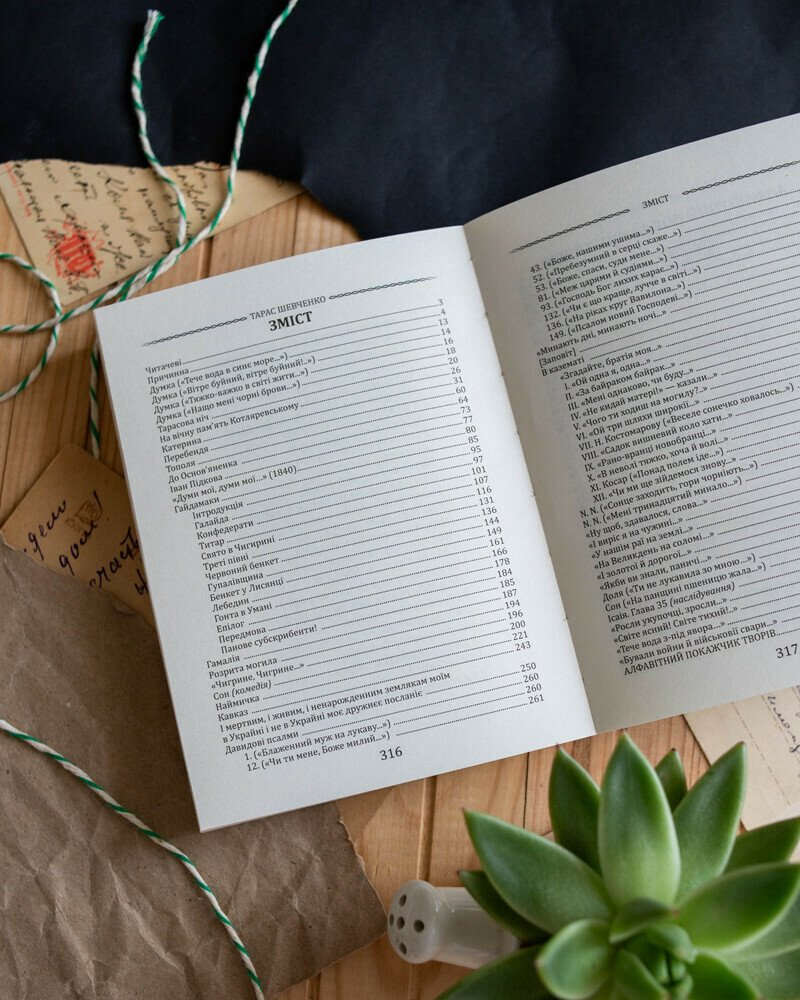 ТАРАС ШЕВЧЕНКО
ЗМІСТ
Читачеві 3
Причинна 4
Думка («Тече вода в синє море...») 13
Думка («Вітре буйний, вітре буйний!..») 14
Думка («Тяжко-важко в світі жити...») 16
Думка («Нащо мені чорні брови...») 18
Тарасова ніч 20
На вічну пам'ять Котляревському 26
Катерина 31
Перебендя 60
Тополя 64
До Основ'яненка 73
Іван Підкова 77
«Думи мої, думи мої...» (1840) 80
Гайдамаки 85
Інтродукція 95
Галайда 97
Конфедерати 101
Титар 107
Свято в Чигирині 116
Треті півні 131
Червоний бенкет 136
Гупалівщина 144
Бенкет у Лисянці 149
Лебедин 161
Гонта в Умані 166
Епілог 178
Передмова 184
Панове субскрибенти! 185
Гамалія 187
Розрита могила 194
«Чигрине, Чигрине...» 196
Сон (комедія) 200
Наймичка 221
Кавказ 243
І мертвим, і живим, і ненарожденним землякам моїм
в Украйні і не в Украйні моє дружнєє посланіє 250
Давидові псалми 260
1. («Блаженний муж на лукаву...») 260
12. («Чи ти мене, Боже милий...») 261
316
ЗМІСТ
43. («Боже, нашими ушима...»)
52. («Пребезумний в серці скаже...»)
53. («Боже, спаси, суди мене...»)
81. («Меж царями й судіями...»)
93. («Господь Бог лихих карає...»)
132. («Чи є що краще, лучче в світі...»)
136. («На ріках круг Вавилона...»)
149. («Псалом новий Господеві...»)
«Минають дні, минають ночі...»
[Заповіт]
В казематі
«Згадайте, братія моя...»
I. «Ой одна я, одна...»
II. «За байраком байрак...»
III. «Мені однаково, чи буду...»
IV. «Не кидай матері!» — казали...
V. «Чого ти ходиш на могилу?..»
VI. «Ой три шляхи широкії...»
VII. Н. Костомарову («Веселе сонечко ховалось...»)
VIII. «Садок вишневий коло хати...»
IX. «Рано-вранці новобранці...»
X. «В неволі тяжко, хоча й волі...»
XI. Косар («Понад полем іде...»)
XII. «Чи ми ще зійдемося знову...»
N. N. («Сонце заходить, гори чорніють...»)
N. N. («Мені тринадцятий минало...»)
«Ну щоб, здавалося, слова...»
«І виріс я на чужині...»
«У нашім раї на землі...»
«На Великдень на соломі...»
«І золотої й дорогої...»
«Якби ви знали, паничі...»
Доля («Ти не лукавила зо мною...»)
Сон («На панщині пшеницю жала...»)
Ісаія. Глава 35 (наслідування)
«Росли укупочці, зросли...»
«Світе ясний! Світе тихий!..»
«Тече вода з-під явора...»
«Бували войни й військовії свари...»
АЛФАВІТНИЙ ПОКАЖЧИК ТВОРІВ
317